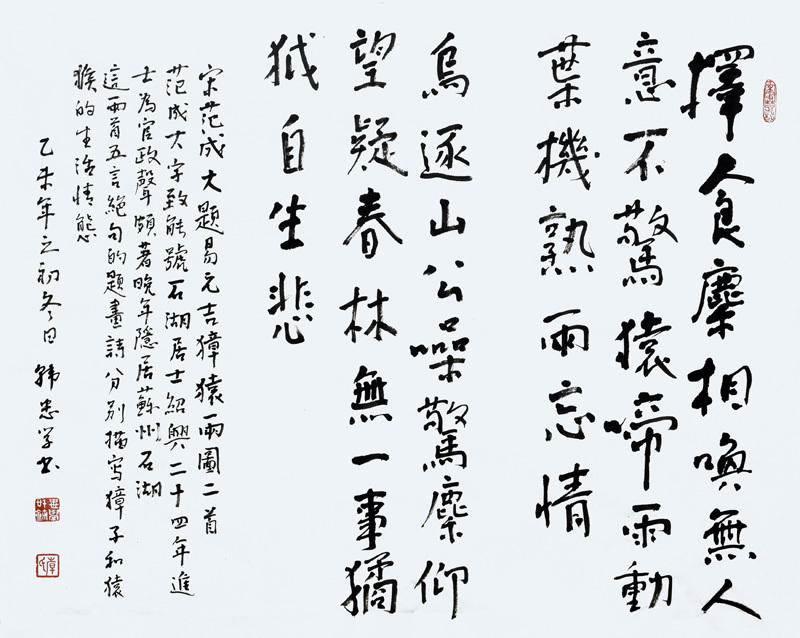 擇食麇相喚無人
意不驚猿啼雨動
葉機熟兩忘情
烏逐山公噪驚麇仰
望疑春林無一事獝
狘自生悲
宋范成大題易元吉獐猿兩圖二首
范成大字致能號石湖居士紹興二十四年進
士為官政聲頗著晚年隱居蘇州石湖
這兩首五言絕句的題畫詩分別描寫獐子和猿
猴的生活情態
乙未年之初冬日韓忠學書